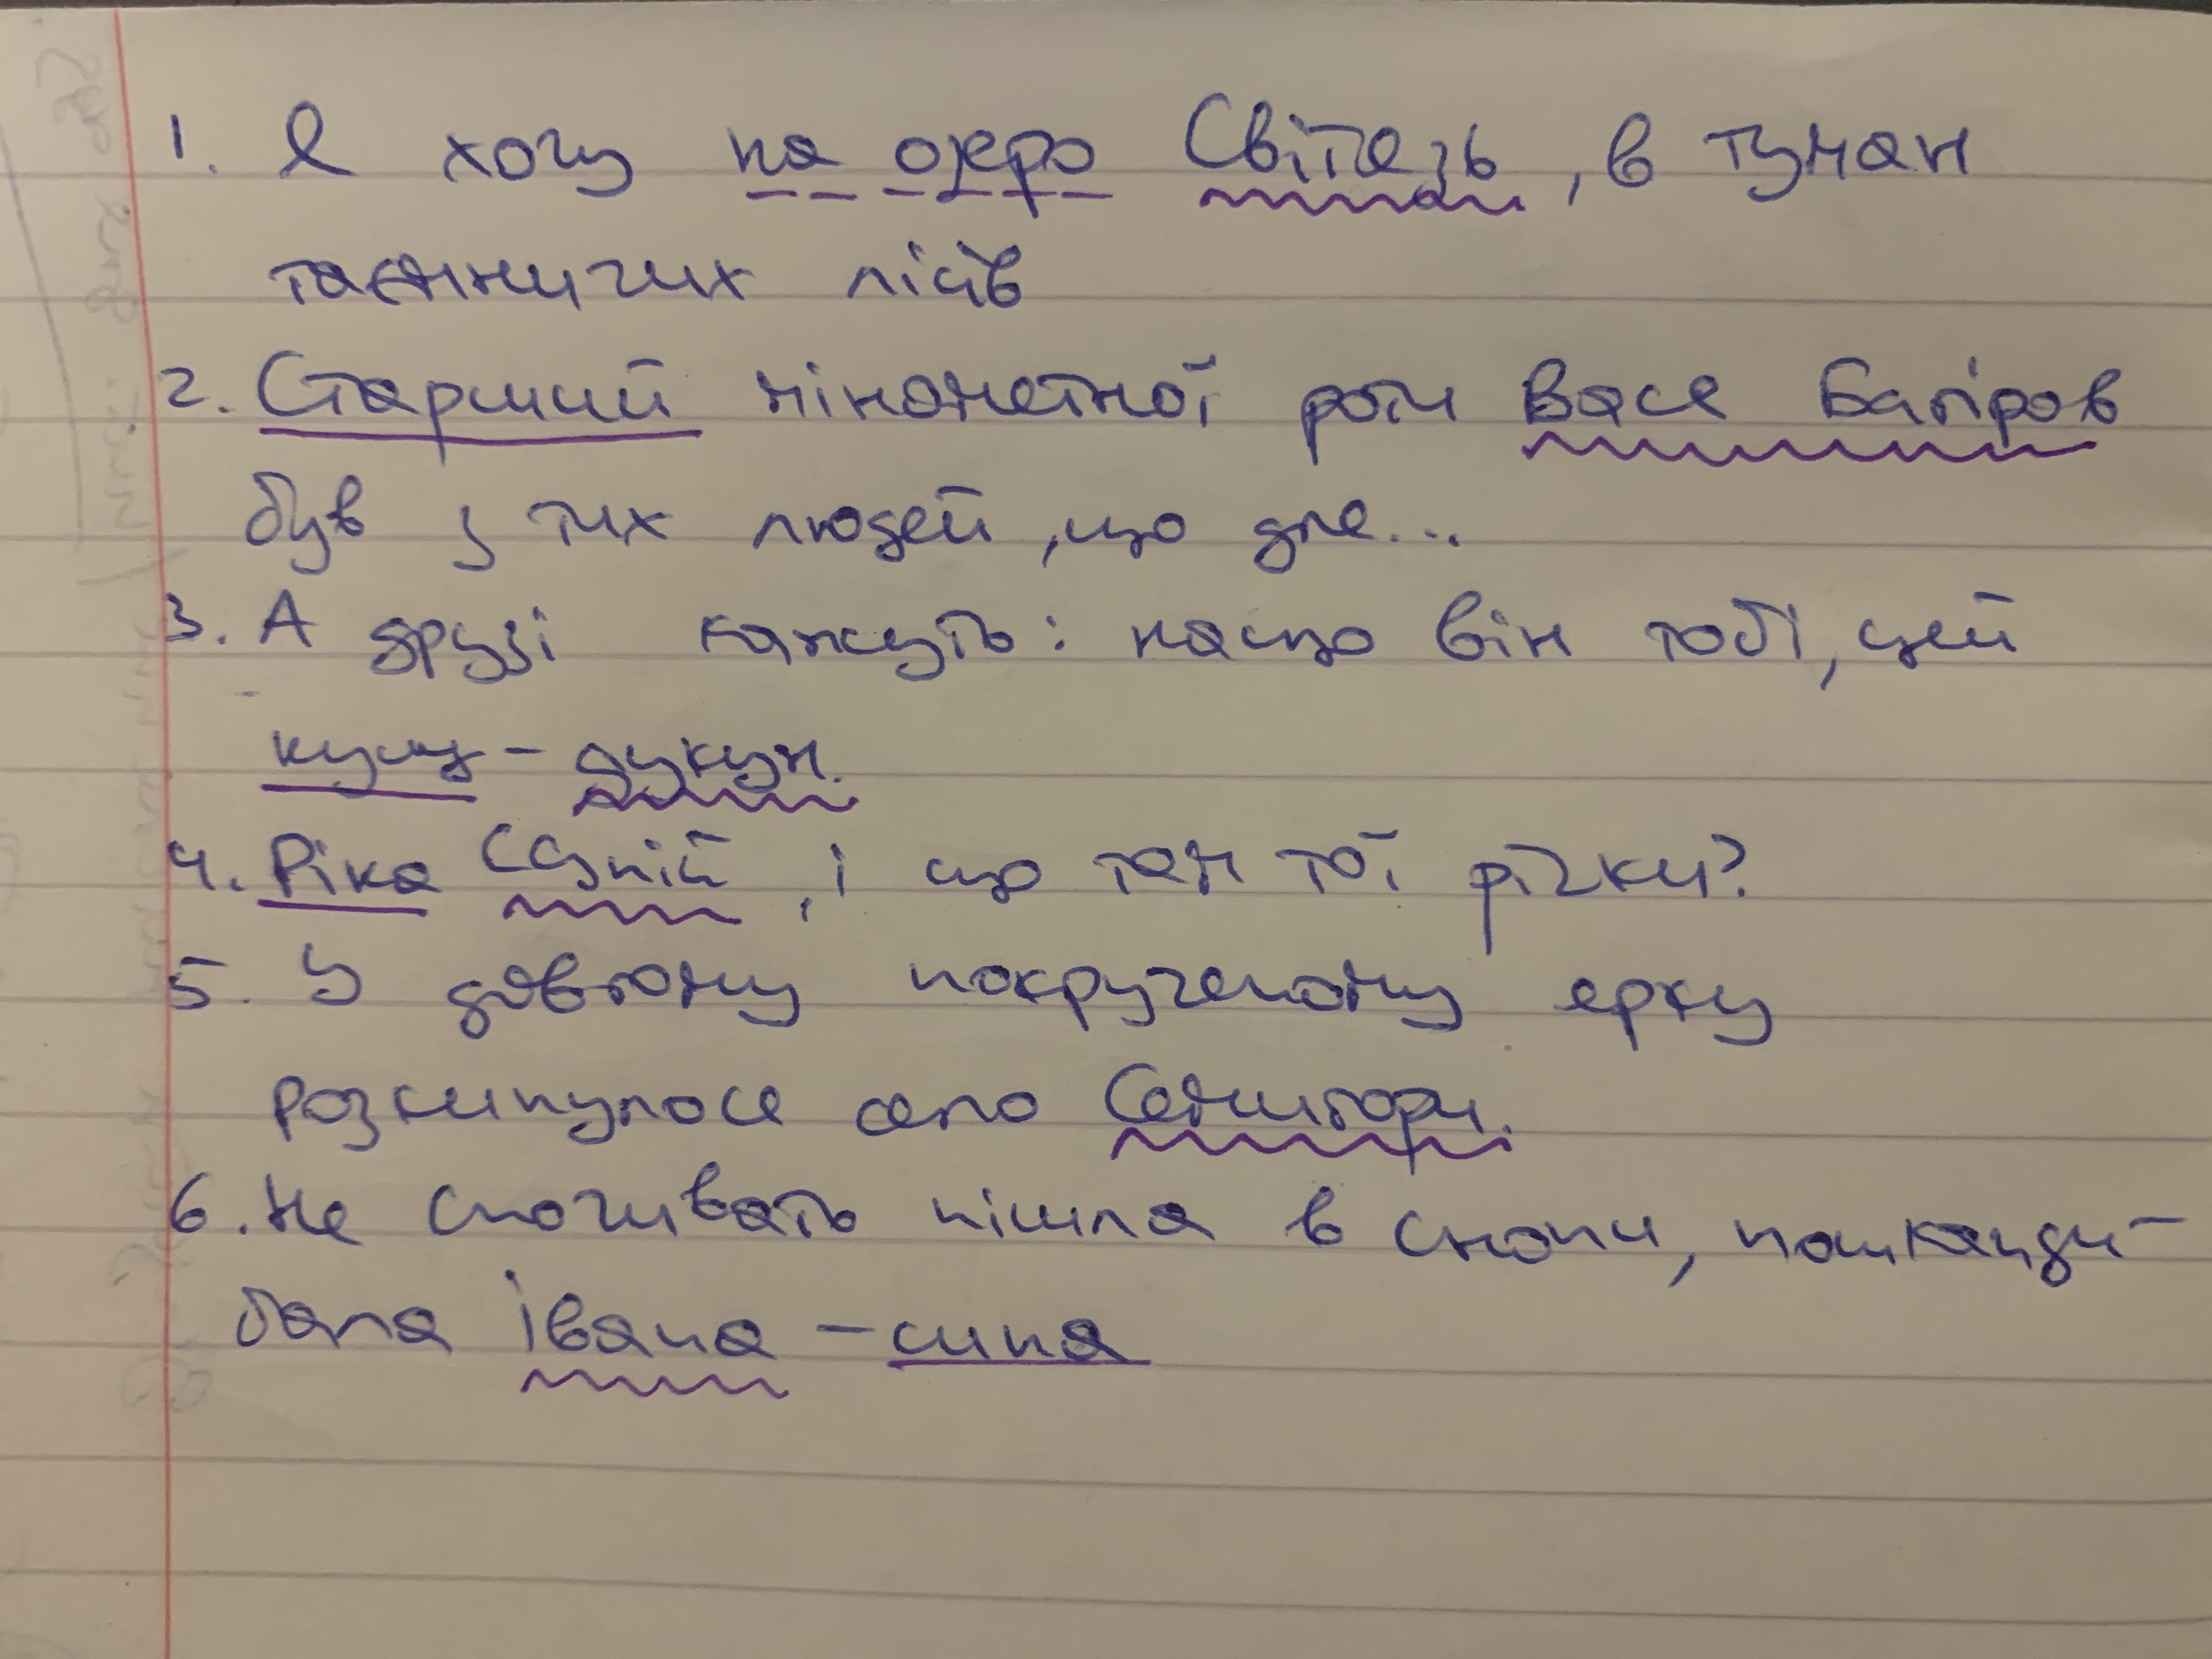 1. Я хочу на озеро Світязь, в туман
таємничих лісів
2. Старший мінометної роти Вася Багіров
був з тих людей, що для...
3. А друзі кажуть: нащо він тобі, цей
купец - дукун.
4. Ріка Сяпій, і що там тої річки?
5. У довгому покрученому ярку
розкинулося село Семигори.
6. Не спочивать пішла в снопи, пошканди-
бала Івана - сина